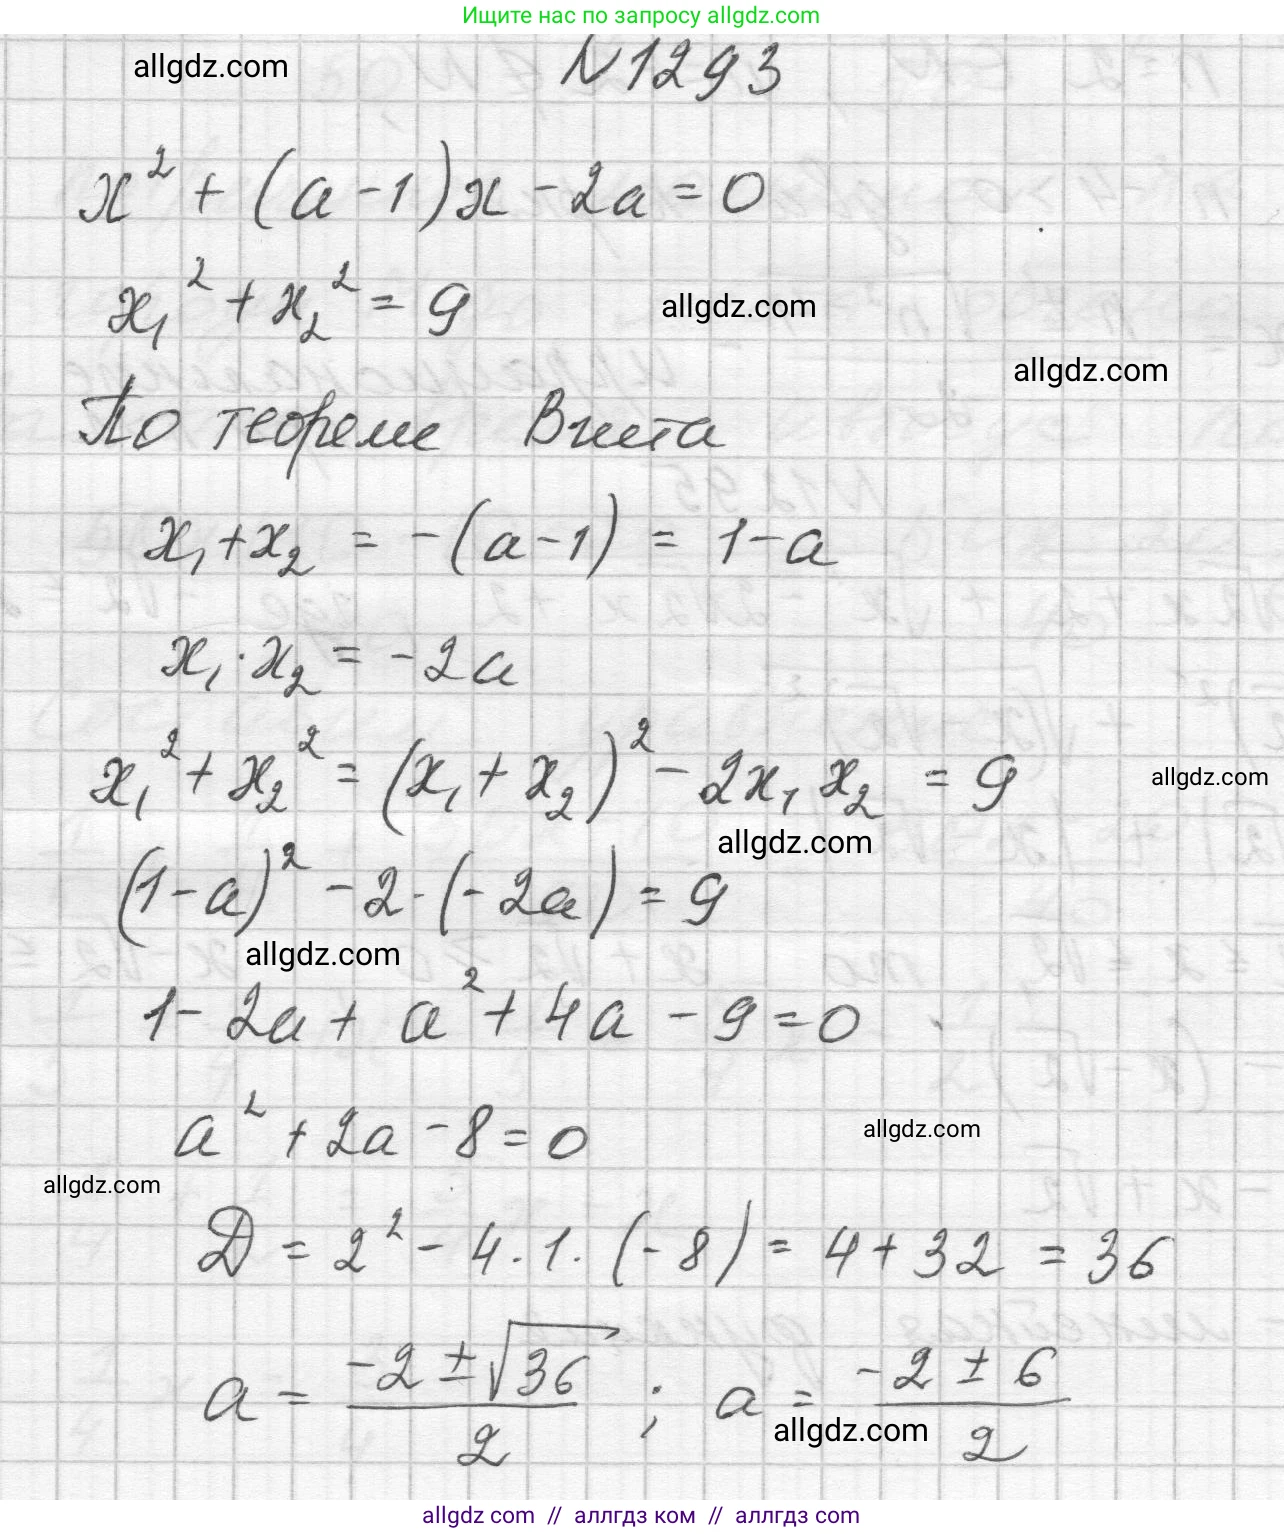 Ищите нас по запросу allgdz.com
allgdz.com
N1293
x² + (a - 1)x - 2a = 0
x₁² + x₂² = 9
allgdz.com
allgdz.com
По теореме Виета
x₁ + x₂ = -(a - 1) = 1 - a
x₁ · x₂ = -2a
x₁² + x₂² = (x₁ + x₂)² - 2x₁ x₂ = 9
allgdz.com
allgdz.com
(1 - a)² - 2 · (-2a) = 9
allgdz.com
1 - 2a + a² + 4a - 9 = 0
a² + 2a - 8 = 0
allgdz.com
allgdz.com
D = 2² - 4 · 1 · (-8) = 4 + 32 = 36
a = (-2 ± √36)/2 ; a = (-2 ± 6)/2
allgdz.com
allgdz.com // аллгдз ком // аллгдз com